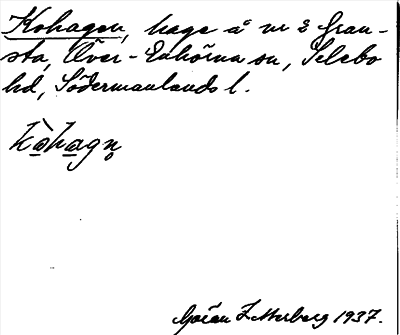 Kohagen, hage å nr 2 Gran-
sta, Över-Enhörna sn, Selebo
hd, Södermanlands l.
kòhagn̥
Göran Zetterberg 1937.